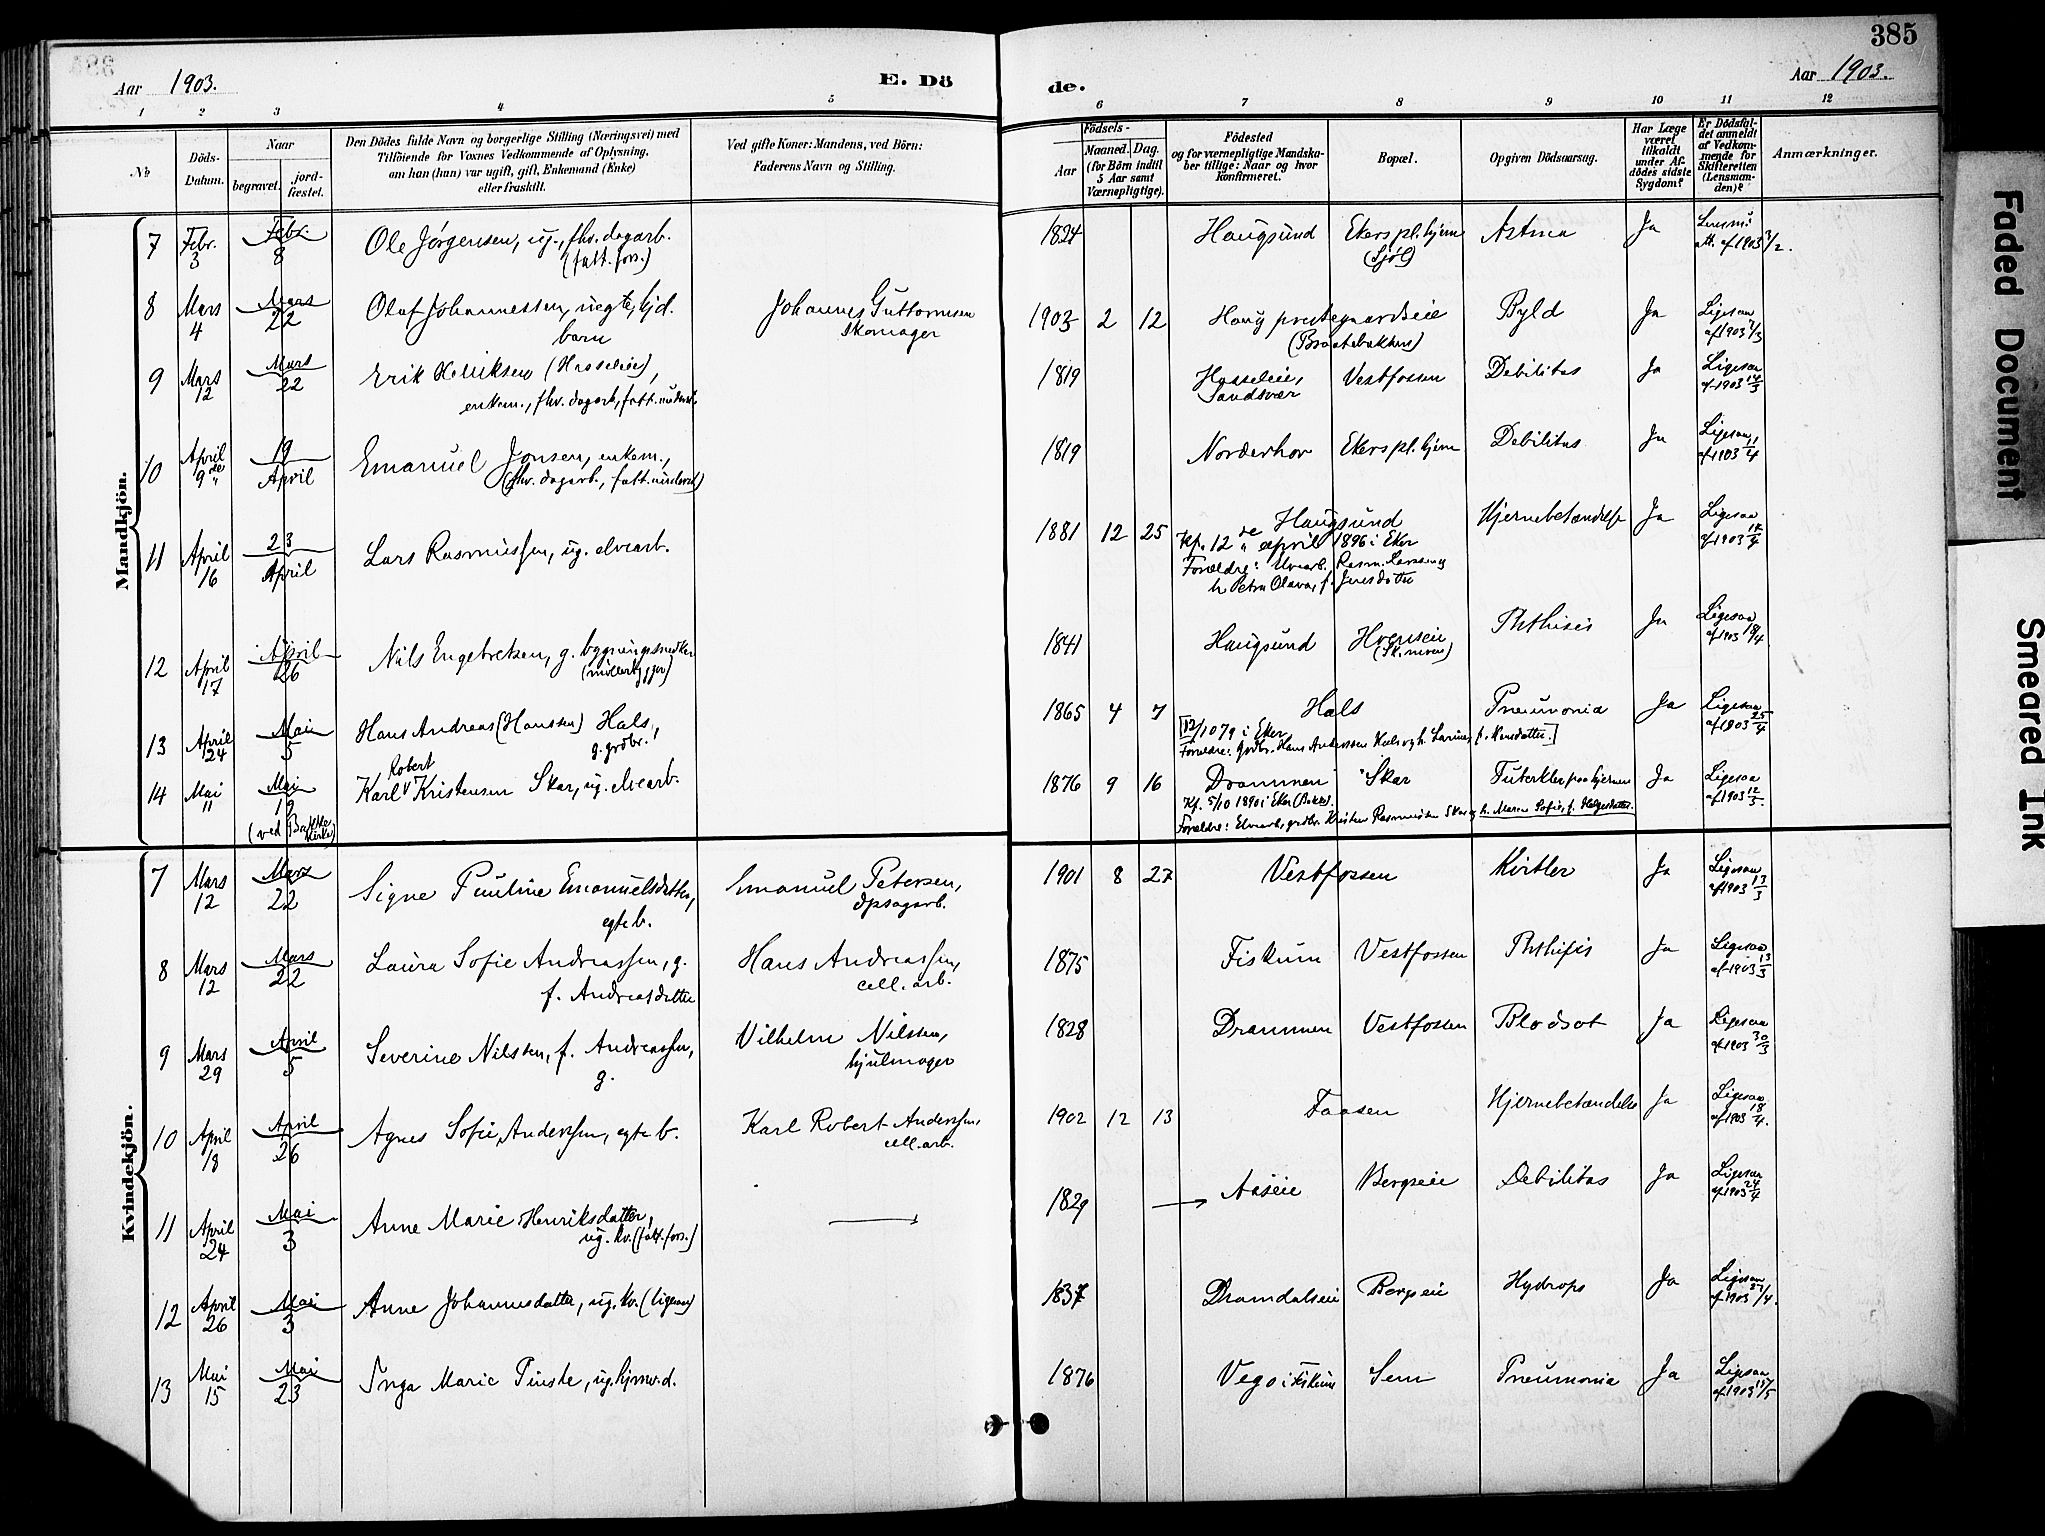 385
Aar 1903.
E. Dö
de.
Aar 1903.
1 2 3 4 5
6 7 8 9 10 11 12
No
Döds-
Datum.
Naar
begravet.
jord-
fæstet.
Den Dödes fulde Navn og borgerlige Stilling (Næringsvei) med
Tilföiende for Voxnes Vedkommende af Oplysning,
om han (hun) var ugift, gift, Enkemand (Enke)
eller fraskilt.
Ved gifte Koner: Mandens, ved Börn:
Faderens Navn og Stilling.
Födsels-
Aar
Maaned. Dag.
(for Börn indtil
5 Aar samt
Værnepligtige).
Födested
og for værnepligtige Mandska-
ber tillige: Naar og hvor
konfirmeret.
Bopæl.
Opgiven Dödsaarsag.
Har Læge
været
tilkaldt
under Af-
dödes sidste
Sygdom?
Er Dödsfal-
det anmeldt
af Vedkom-
mende for
Skifteretten
(Lensman-
den)?
Anmærkninger.
Mandkjön.
7 Febr. 3 Febr. 8 Ole Jørgensen, ug., fhv. dagarb. 1824 Haugsund Ekers pl.hjem Astma Ja Lensm.
(fatt. fors.) (Sjøl) att. af 1903 3/2.
8 Mars 4 Mars 22 Olaf Johannessen, uegte hjd. Johannes Guttormsen 1903 2 12 Haug prestegaardseie Byld Ja Ligesaa
barn skomager (Braatebakken) af 1903
9 Mars 12 Mars 22 Erik Henriksen (Hasseleie), 1819 Hasseleie, Vestfossen Debilitas Ja Ligesaa
enkem., fhv. dagarb., fatt. underst. Sandsvær af 1903 14/3
10 April 9de 19 April Emanuel Jonsen, enkem., 1819 Norderhov Ekers pl.hjem Debilitas Ja Ligesaa
(fhv. dagarb., fatt. underst.) af 1903 11/4
11 April 16 23 April Lars Rasmussen, ug. elvearb. 1881 12 25 Haugsund Hjernebetændelse Ja Ligesaa
Kf. 12de april 1896 i Eker af 1903 18/4
Forældre: Elvearb. Rasm. Larsen og
h. Petra Olava, f. Jensdatter
12 April 17 April 26 Nils Engebretsen, g. bygningssnedker 1841 Haugsund Hvenseie Phthisis Ja Ligesaa
(møllebygger) af 1903 18/4
13 April 24 Mai 5 Hans Andreas (Hanssen) Hals, 1865 4 7 Hals Pneumonia Ja Ligesaa
g. grdbr. [12/10 79 i Eker af 1903 25/4
Forældre: Grdbr. Hans Anderssen Hals og h. Larine, f. Hansdatter.]
14 Mai 11 Mai 19 Karl Robert Kristensen Skar, ug. elvearb. 1876 9 16 Drammen Skar Tuberkler paa hjernen Ja Ligesaa
(ved Bakke kirke) Kf. 5/10 1890 i Eker (Bakke). af 1903 12/5.
Forældre: Elvearb., grdbr. Kristen Rasmussen Skar og h. Maren Sofie, f. Helgesdatter.
Kvindekjön.
7 Mars 12 Mars 22 Signe Pauline Emanuelsdatter, Emanuel Petersen, 1901 8 27 Vestfossen Kirtler Ja Ligesaa
egte b. opsagarb. af 1903 13/3
8 Mars 12 Mars 22 Laura Sofie Andreassen, g. Hans Andreassen, 1875 Fiskum Vestfossen Phthisis Ja Ligesaa
f. Andreasdatter cell. arb. af 1903 13/3
9 Mars 29 April 5 Severine Nilsen, f. Andreassen, Vilhelm Nilssen, 1828 Drammen Vestfossen Blodsot Ja Ligesaa
g. hjulmager af 1903 30/3
10 April 18 April 26 Agnes Sofie Anderssen, egte b. Karl Robert Anderssen, 1902 12 13 Faasen Hjernebetændelse Ja Ligesaa
cell. arb. af 1903 18/4.
11 April 24 Mai 3 Anne Marie Henriksdatter, 1829 Aaseie Bergseie Debilitas Ja Ligesaa
ug. kv. (fatt. fors.) af 1903 24/4
12 April 26 Mai 3 Anne Johannesdatter, ug. kv. (ligesaa) 1837 Dramdalseie Bergseie Hydrops Ja Ligesaa
af 1903 27/4.
13 Mai 15 Mai 23 Inga Marie Tinste, ug. hjmv. d. 1876 Vego i Fiskum Sem Pneumonia Ja Ligesaa
af 1903 15/5
Faded Document
Smeared Ink